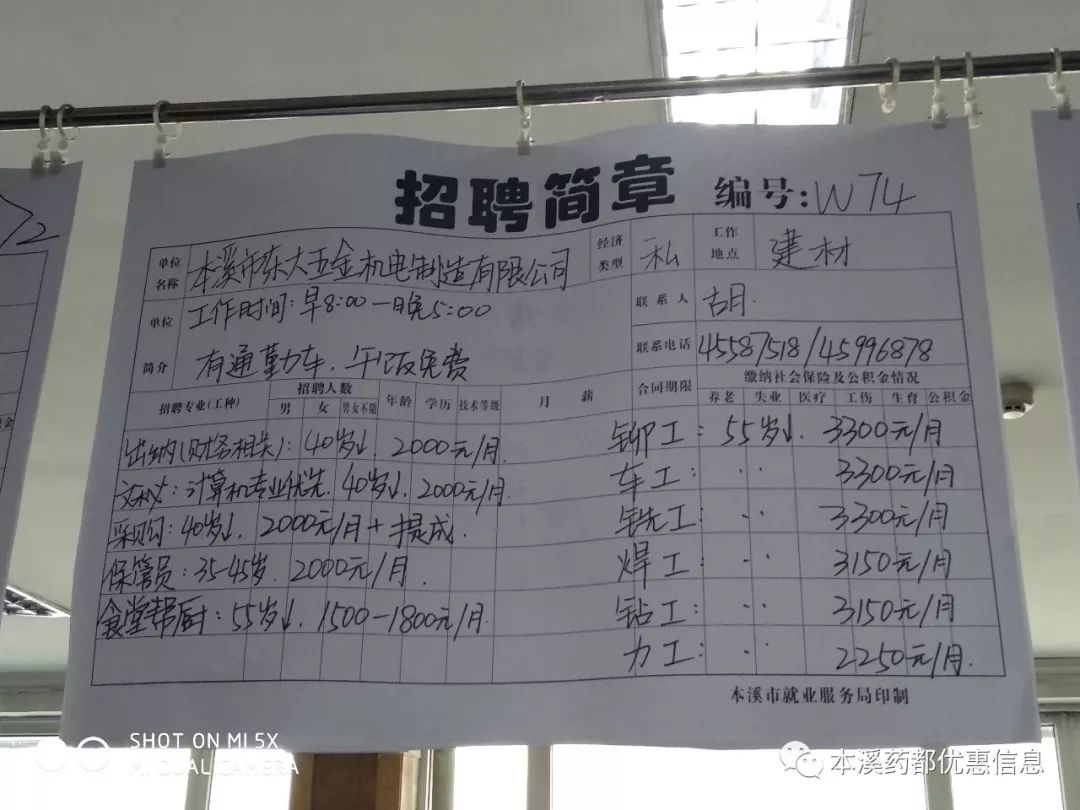 招聘简章 编号:W74
单位名称 本溪市东大五金机电制造有限公司 经济类型 私 工作地点 建材
单位简介 工作时间:早8:00—晚5:00 联系人 胡
有通勤车,午饭免费 联系电话 45587518/45996878
招聘专业(工种) 招聘人数 年龄 学历 技术等级 月薪 合同期限 缴纳社会保险及公积金情况
男 女 男女不限 养老 失业 医疗 工伤 生育 公积金
出纳(财务相关):40岁↓. 2000元/月. 铆工:55岁↓. 3300元/月
文秘:计算机专业优先.40岁↓.2000元/月. 车工: ·· 3300元/月
采购:40岁↓. 2000元/月+提成. 铣工: ·· 3300元/月
保管员:35-45岁. 2000元/月. 焊工: ·· 3150元/月
食堂帮厨:55岁↓. 1500-1800元/月. 钻工: ·· 3150元/月
力工: ·· 2250元/月.
本溪市就业服务局印制
SHOT ON MI 5X
MI DUAL CAMERA
本溪药都优惠信息